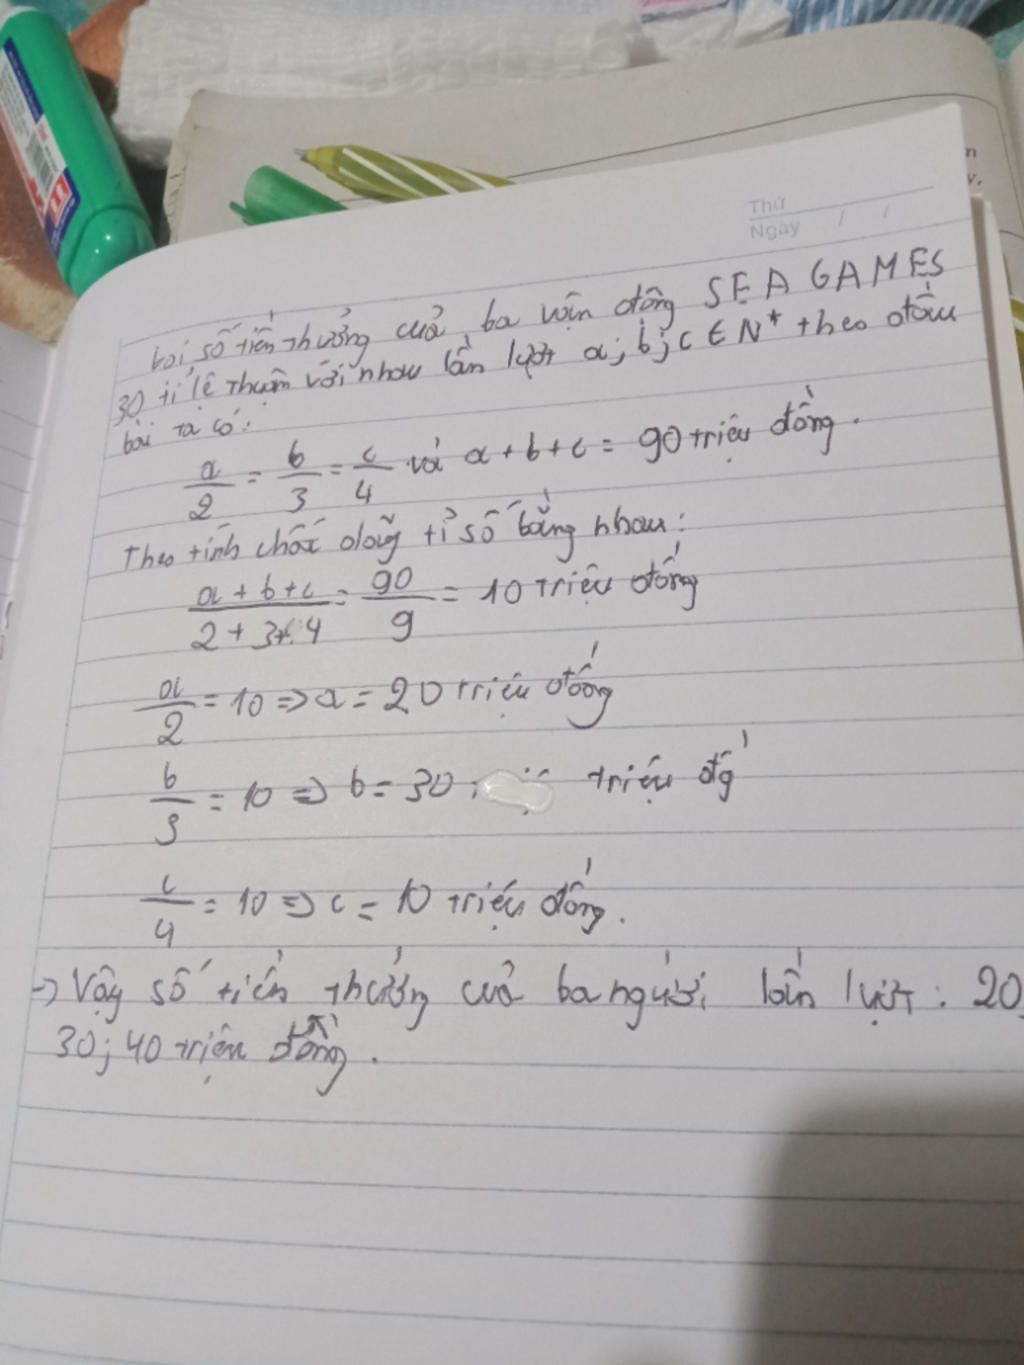 Thứ
Ngày / /
số tiền thưởng của ba vận động SEA GAMES
30 tỉ lệ thuận với nhau lần lượt a; b; c ∈ N* theo đầu
bài ra có:
a/2 = b/3 = c/4 và a + b + c = 90 triệu đồng.
Theo tính chất dãy tỉ số bằng nhau:
a + b + c / 2 + 3 + 4 = 90/9 = 10 triệu đồng
a/2 = 10 => a = 20 triệu đồng
b/3 = 10 => b = 30 triệu đg
c/4 = 10 => c = 10 triệu đồng.
-> Vậy số tiền thưởng của ba người lần lượt: 20;
30; 40 triệu đồng.